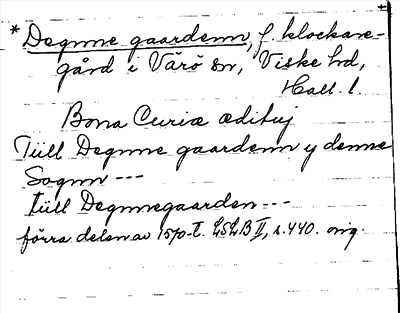 * Degnne gaardenn, f. klockare-
gård i Värö sn, Viske hd,
Hall. l.
Bona Curiæ ædituj
Tiill Degnne gaardenn y denne
Sognn ---
Tiill Degnnegaarden ---
förra delen av 1570-t. LSLB II, s. 440. orig.